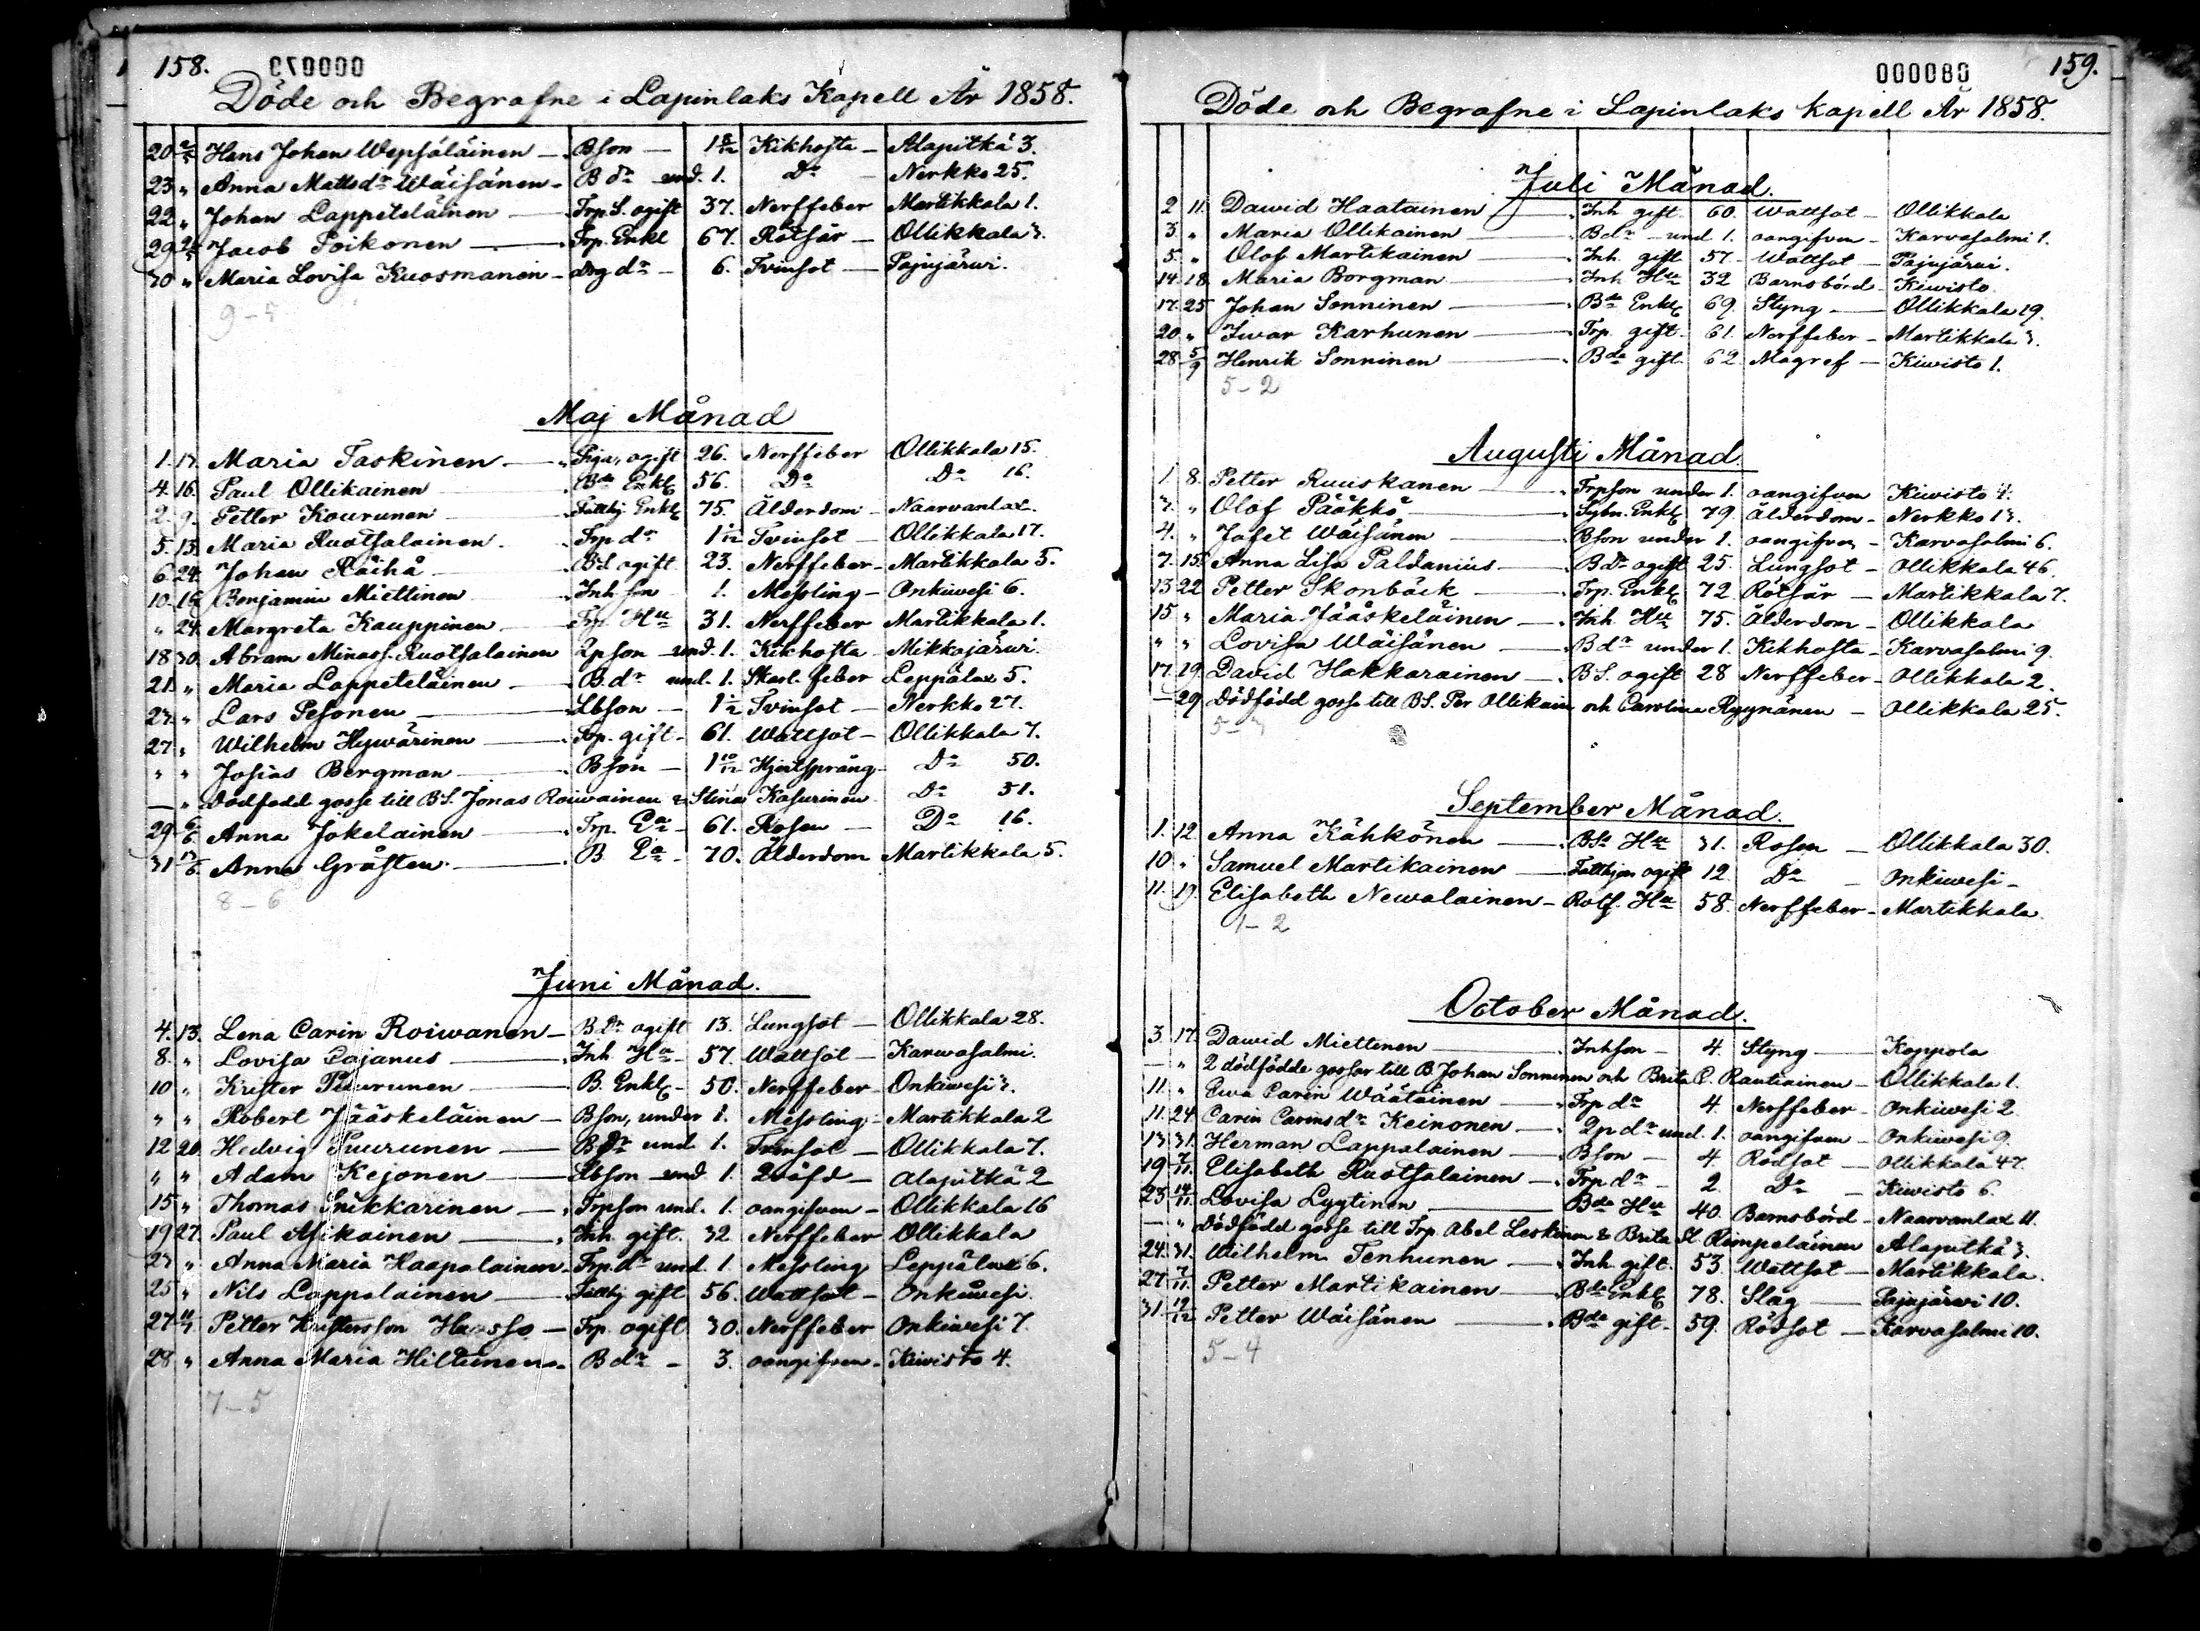 158. 000079
Döde och Begrafne i Lapinlaks Kapell År 1858.
20 2/5 Hans Johan Wepsäläinen — Bson — 1 8/12 Kikhosta — Alapitkä 3.
23 " Anna Mattsdr Wäisänen — B dr und. 1. Do — Nerkko 25.
22 " Johan Lappeteläinen — Trp. S. ogift 37. Nerffeber Martikkala 1.
29 Jacob Poikonen — Trp. Enkl 67. Rötsår — Ollikkala 3.
30 " Maria Lovisa Kuosmanen — drg dr — 6. Tvinsot — Pajujärwi.
9-5
Maj Månad
1. 13. Maria Taskinen — Piga, ogift 26. Nerffeber Ollikkala 15.
4. 16. Paul Ollikainen — Bde Enkl 56. Do Do 16.
2. 9. Petter Kourunen — Fatthj Enkl 75. Ålderdom — Naarvanlax.
5. 13. Maria Ruotsalainen — Trp dr 1 1/12 Tvinsot — Ollikkala 17.
6 24. Johan Räihä — BS ogift 23. Nerffeber — Martikkala 5.
10. 16. Benjamin Miettinen — Inh son 1. Messling — Onkiwesi 6.
" 24. Margreta Kauppinen — Trp Hu 31. Nerffeber Martikkala 1.
18 30. Abram Minass. Ruotsalainen Qpson und. 1. Kikhosta — Mikkajärwi.
21 " Maria Lappeteläinen — B. dr und. 1. Skarl. feber Leppälax 5.
23. " Lars Pesonen — Lbson — 1 Tvinsot — Nerkko 27.
27 " Wilhelm Hywärinen — Trp. gift — 61. Wattsot — Ollikkala 7.
" " Josias Bergman — Bson — 1 10/12 Hjertsprång Do 50.
— " Dödfödd gosse till BS. Jonas Roiwainen & Stina Kasurinen Do 31.
29 6/6 Anna Jokelainen — Trp. Ea — 61. Rosen — Do 16.
31 13/6 Anna Gråsten — B Ea — 70. Ålderdom Martikkala 5.
8-6
Juni Månad.
4. 13. Lena Carin Roiwanen — B. Dr ogift 13. Lungsot — Ollikkala 28.
8. " Lovisa Cajanus — Inh Hu — 57. Wattsot — Karwasalmi.
10 " Krister Puurunen — B. Enkl — 50. Nerffeber — Onkiwesi 3.
" " Robert Jääskeläinen — Bson, under 1. Messling — Martikkala 2
12 20. Hedvig Puurunen — B dr und 1. Tvinsot — Ollikkala 7.
" " Adam Kejonen — Lbson und 1. Qväfd — Alapitkä 2
15 " Thomas Snikkarinen — Trpson und. 1. oangifven — Ollikkala 16
19 27. Paul Asikainen — Inh. gift. 32 Nerffeber Ollikkala
23 " Anna Maria Haapalainen — Trp. dr und 1. Messling Leppälax 6.
25 " Nils Lappalainen — Fatthj gift 56. Wattsot — Onkiwesi.
27 11/7 Petter Kristersson — Trp. ogift 30. Nerffeber Onkiwesi 7.
28 " Anna Maria Hiltunen — B dr — 3. oangifven — Kiwistö 4.
7-5
000080 159.
Döde och Begrafne i Lapinlaks kapell År 1858.
Juli Månad.
2 11. Dawid Haatainen — Inh gift 60. Wattsot — Ollikkala
3 " Maria Ollikainen — B dr — und 1. oangifven — Karvasalmi 1.
5. " Olof Martikainen — Inh. gift 57. Wattsot — Pajujärwi.
14. 18. Maria Borgman — Inh Hu 32 Barnsbörd — Kiwistö.
17. 25 Johan Sonninen — Bde Enkl 69. Styng — Ollikkala 19.
20. " Iwar Karhunen — Trp. gift. 61. Nerffeber — Martikkala 3.
28 5/9 Henrik Sonninen — Bde gift. 62. Magref — Kiwistö 1.
5-2
Augusti Månad.
1 8. Petter Ruuskanen — Trpson under 1. oangifven Kiwistö 4.
3. " Olof Pääkkö — Sytn. Enkl 79. Ålderdom — Nerkko 13.
4. " Jafet Wäisänen — Bson under 1. oangifven — Karvasalmi 6.
7. 15. Anna Lisa Paldanius — B dr ogift 25. Lungsot — Ollikkala 46.
13 22 Petter Skonbäck — Trp. Enkl 72. Rötsår — Martikkala 7.
15 " Maria Jääskeläinen — Inh Hu 75. Ålderdom — Ollikkala
" " Lovisa Wäisänen — B dr under 1. Kikhosta — Karvasalmi 9.
17. 19. David Hakkarainen — BS. ogift 28 Nerffeber — Ollikkala 2.
— 29. Dödfödd gosse till BS. Per Ollikain och Carolina Ryynänen — Ollikkala 25.
5-3
September Månad.
1. 12 Anna Kähkönen — BSs Hu 31. Rosen — Ollikkala 30.
10. " Samuel Martikainen — Fatthjon ogift 12. Do — Onkiwesi —
11. 19. Elisabeth Newalainen — Rotf. Hu 58. Nerffeber — Martikkala
1-2
October Månad.
3. 17. Dawid Miettinen — Inhson — 4. Styng — Koppola
— " 2 dödfödde gossar till B. Johan Sonninen och Brita C. Rautiainen — Ollikkala 1.
11. " Ewa Carin Wäätäinen — Trp dr 4. Nerffeber — Onkiwesi 2
11. 24 Carin Carinsdr Keinonen — Qp dr und. 1. oangifven — Onkiwesi 9.
13 31. Herman Lappalainen — Bson — 4. Rödsot — Ollikkala 47.
19 7/11. Elisabeth Ruotsalainen — Trp dr — 2. Do — Kiwistö 6.
23 14/11 Lovisa Lyytinen — Bde Hu 40. Barnsbörd — Naarvanlax 11.
— " Dödfödd gosse till Trp Abel Leskinen & Brita St Rimpeläinen Alapitkä 3.
24. 31. Wilhelm Tenhunen — Inh gift. 53. Wattsot — Martikkala.
27 7/11. Petter Martikainen — Bde Enkl 78. Slag — Pajujärwi 10.
31 12/12 Petter Wäisänen — Bde gift. 59. Rödsot — Karvasalmi 10.
5-4